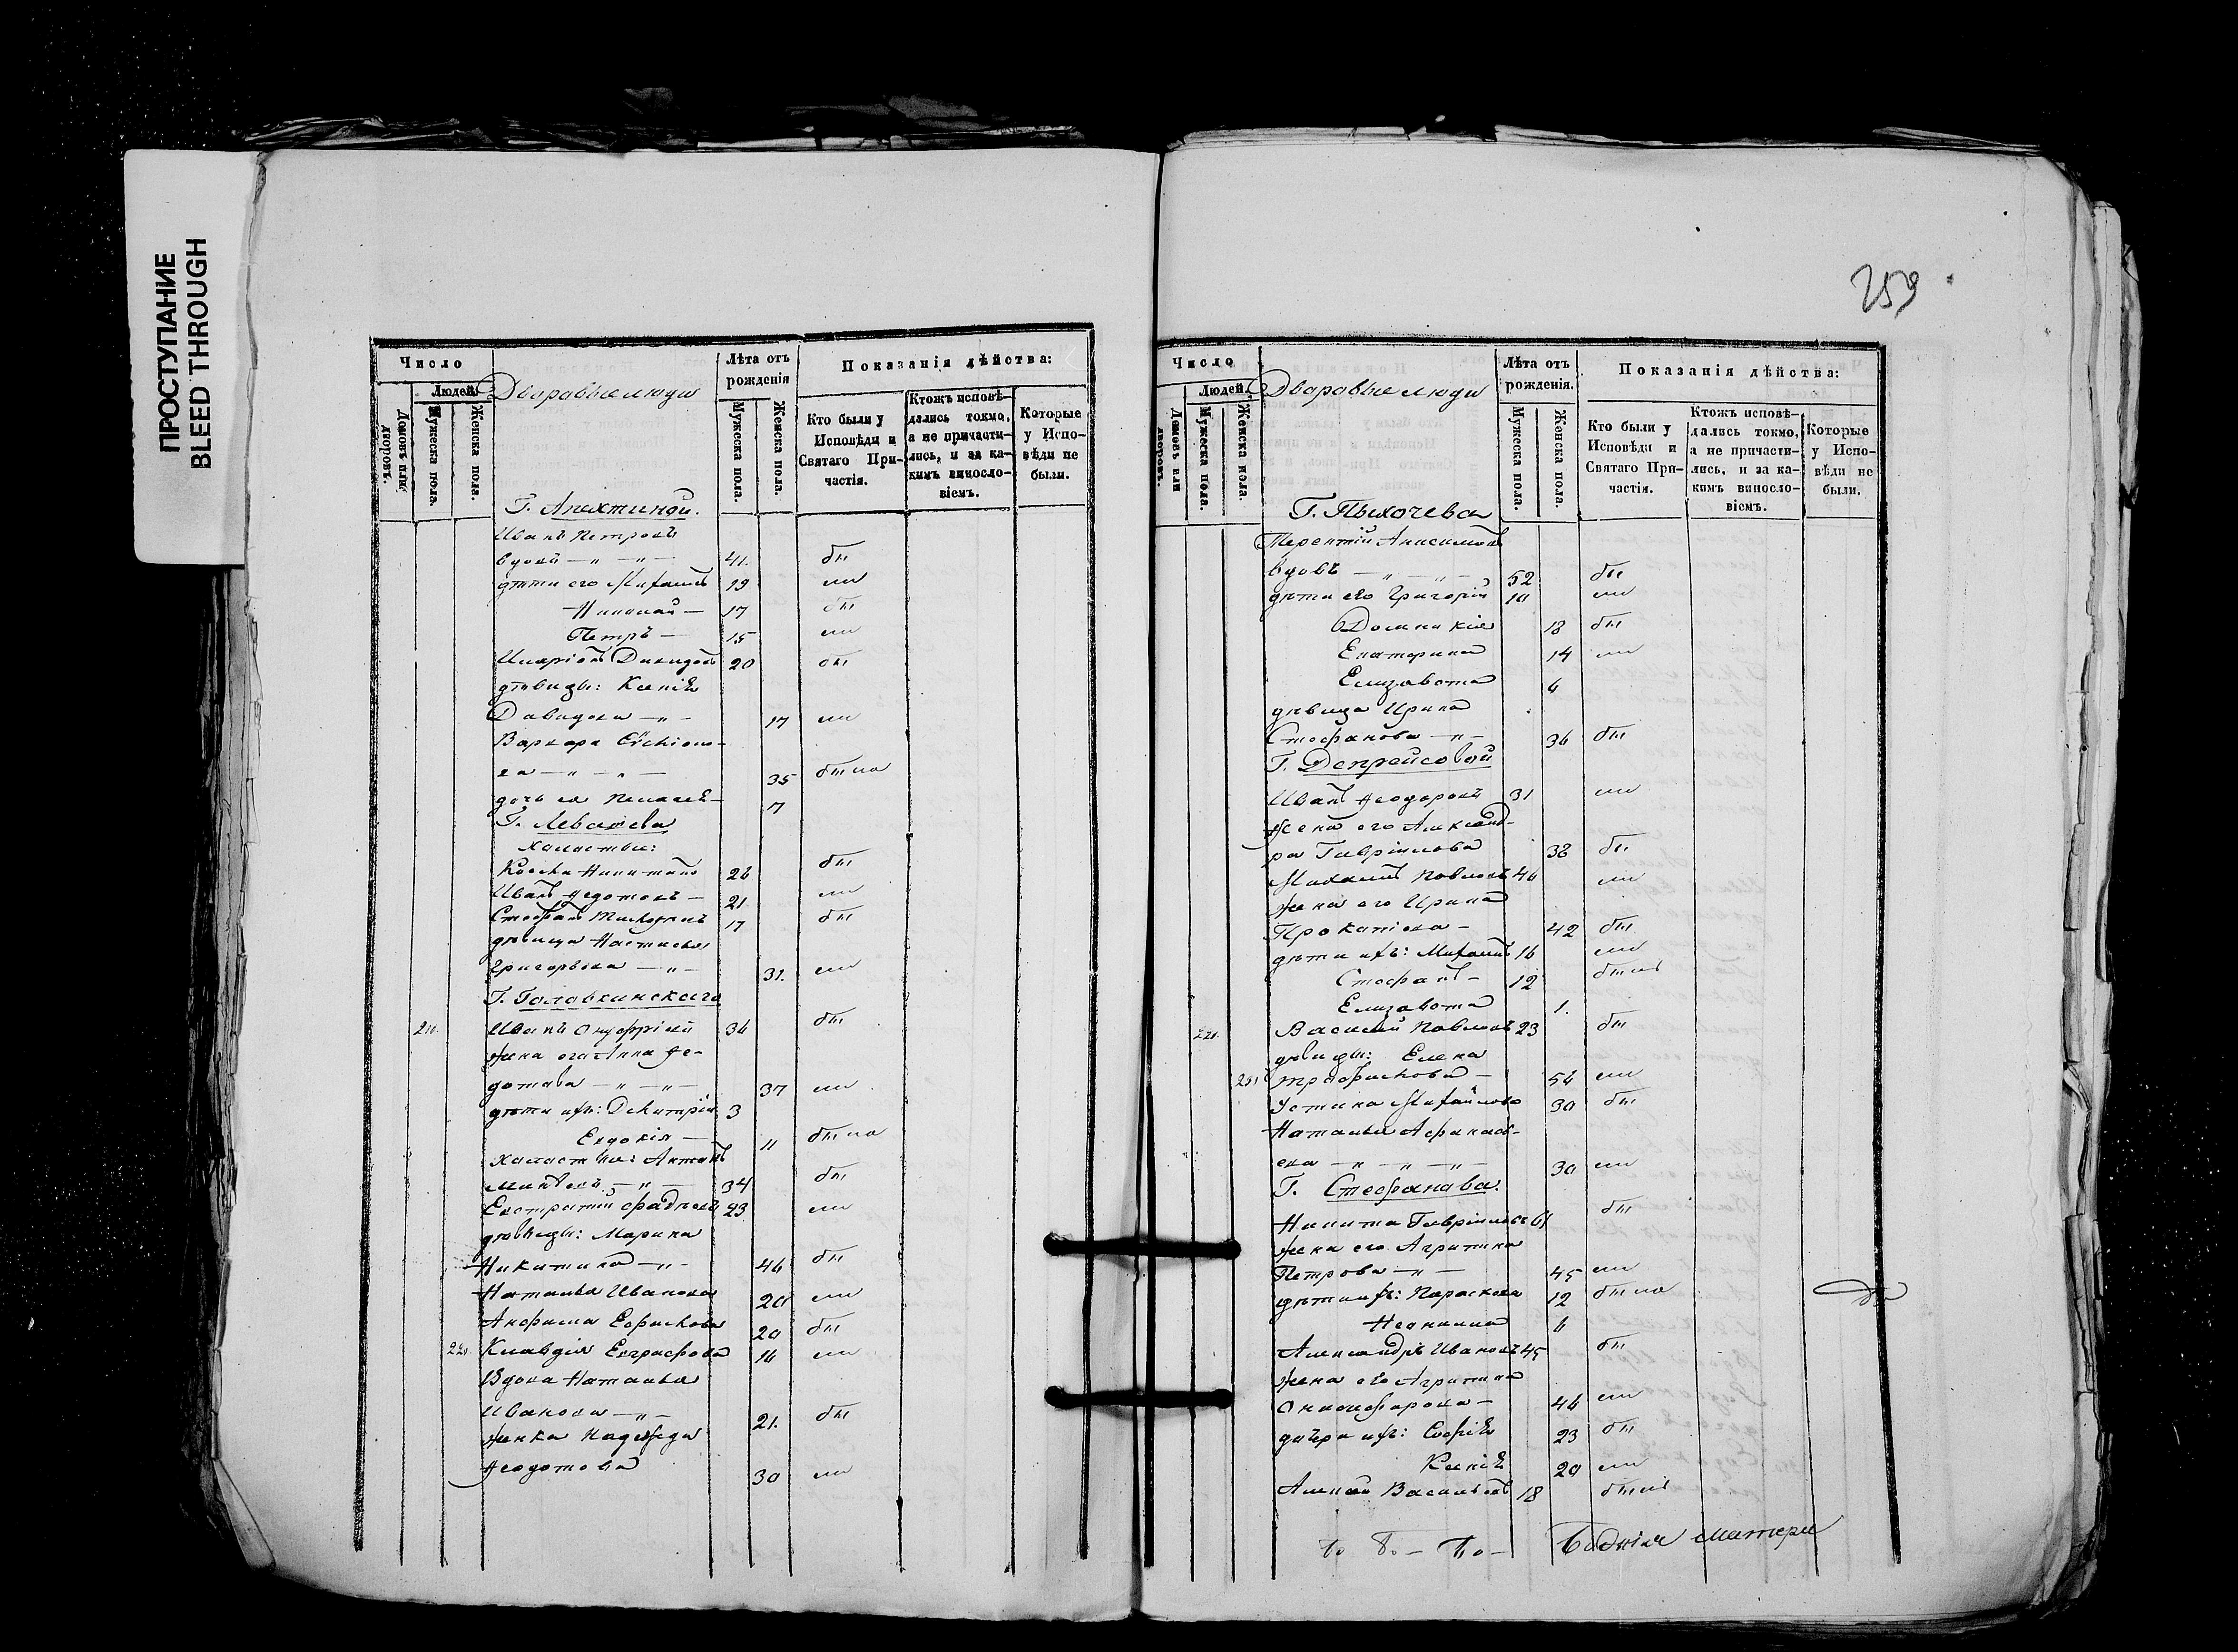 ПРОСТУПАНИЕ
BLEED THROUGH
Число
Людей
Домовъ или дворовъ.
Мужеска пола.
Женска пола.
Дворовые люди
Лѣта отъ рожденія
Мужеска пола.
Женска пола.
Показанія дѣйства:
Кто были у Исповѣди и Святаго Причастія.
Ктожъ исповѣдались токмо, а не причастились, и за какимъ винословіемъ.
Которые у Исповѣди не были.
Г. Апехтиной.
Иванъ Петровъ
вдовъ — " — " — 41. бы
дѣти его Михаилъ 19 ли
Николай — 17 бы
Петръ — 15 ли
Иларіонъ Давидовъ 20 бы
дѣвицы: Ксенія
Давидова — " — 17 ли
Варвара
ва — " — " — 35 была
дочь ея 7
Г. Левашева
холостые:
Никитинъ 26 бы
Иванъ Федотовъ — 21 ли
Стефанъ 17 бы
дѣвица Настасья
Григорьева — " — 31. ли
Г. Головкинскаго
211. Иванъ Онуфріевъ 36 бы
жена его Анна Фе-
дотова — " — " — 37 ли
дѣти ихъ: Дмитрій 3
Евдокія — 11 была
холостые: Антонъ
— " — 34 бы
Евстратій 23 ли
дѣвицы: Марина
Никитина — " — 46 бы
Наталья Иванова 20 ли
Анфиса Ефимова 20 бы
221. Клавдія Евграфова 16 ли
Вдова Наталья
Иванова — " — 21. бы
женка Надежда
Федотова 30 ли
259
Число
Людей.
Домовъ или дворовъ.
Мужеска пола.
Женска пола.
Дворовые люди
Лѣта отъ рожденія.
Мужеска пола.
Женска пола.
Показанія дѣйства:
Кто были у Исповѣди и Святаго Причастія.
Ктожъ исповѣдались токмо, а не причастились, и за какимъ винословіемъ.
Которые у Исповѣди не были.
Г. Пыхочева
Терентій Анисимовъ
вдовъ — " — " — 52 бы
дѣти его Григорій 10 ли
Домникія 18 бы
Екатерина 14 ли
Елизавета 6
дѣвица Ирина
Стефанова — " — 36 бы
Г. Депрейсовой
Иванъ Феодоровъ 31 ли
жена его Александ-
ра Гавріилова 38 бы
Михаилъ Павловъ 46 ли
жена его Ирина
Прокопіева — 42 бы
дѣти ихъ: Михаилъ 16 ли
Стефанъ — 12 былъ
Елизавета 1.
221. Василій Павловъ 23 бы
дѣвицы: Елена
251 Трофимова — 56 ли
Устина Михайлова 30 бы
Наталья Афанась-
ева — " — " — " — 30 ли
Г. Стефанова.
Никита Гавріиловъ 61 бы
жена его Агрипина
Петрова — " — 45 ли
дѣти ихъ: Параскева 12 была
Неонилла 6
Александръ Ивановъ 45 бы
жена его Агрипина
Онисифорова — 46 ли
дщери ихъ: Софія 23 бы
Ксенія 20 ли
Алексѣй Васильевъ 18 былъ
матери